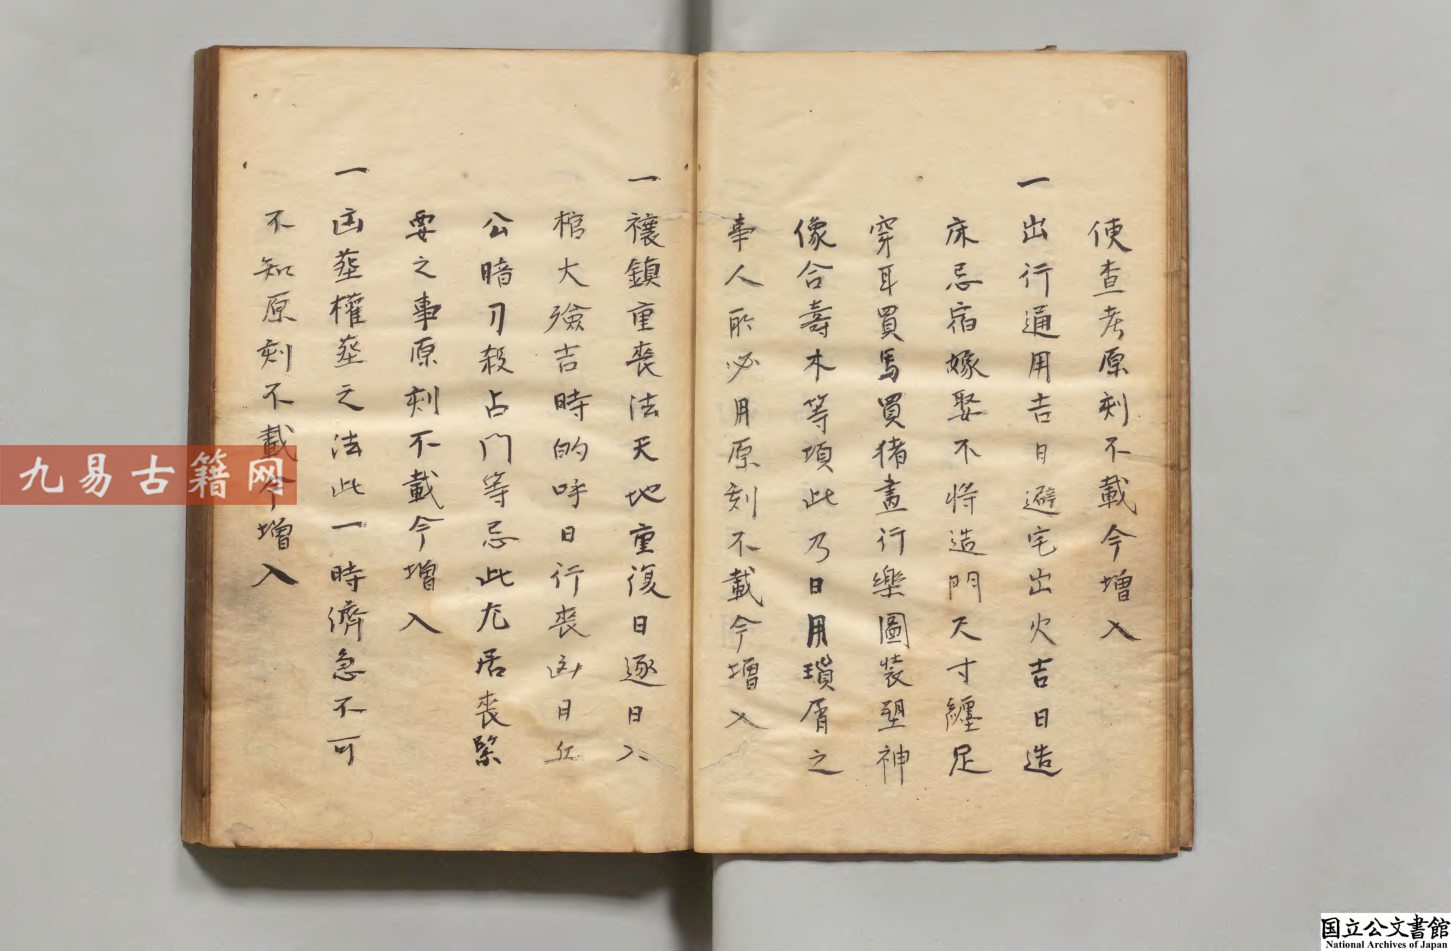 使查考原刻不載今增入
一出行通用吉日避宅出火吉日造
床忌宿嫁娶不將造門尺寸纏足
穿耳買馬買猪畫行樂圖裝塑神
像合壽木等項此乃日用瑣屑之
事人所必用原刻不載今增入
一禳鎮重喪法天地重復日逐日入
棺大殮吉時的呼日行喪凶日
公暗刀殺占門等忌此尤居喪緊
要之事原刻不載今增入
一凶塟權塟之法此一時濟急不可
不知原刻不載今增入
九易古籍网
国立公文書館
National Archives of Japan